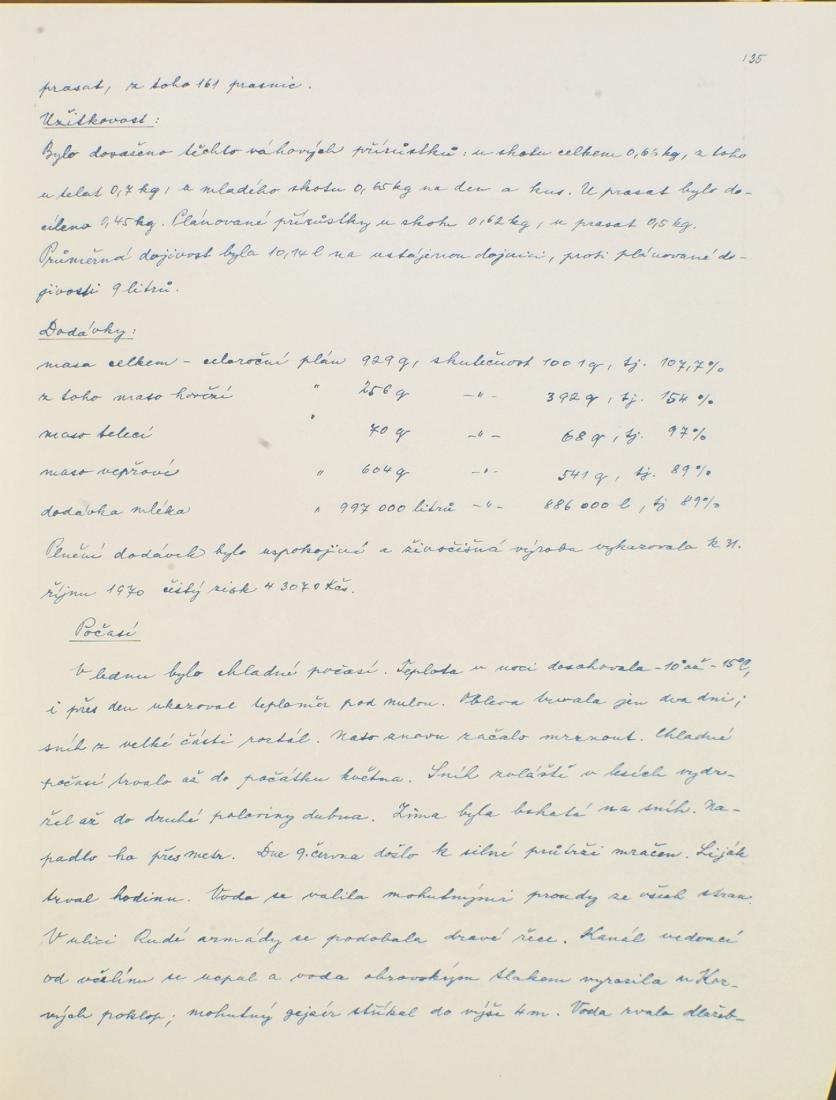 135
prasat, z toho 161 prasnic.
Užitkovost:
Bylo dosaženo těchto váhových přírůstků: u skotu celkem 0,65 kg, z toho
u telat 0,7 kg, u mladého skotu 0,65 kg na den a kus. U prasat bylo do-
cíleno 0,45 kg. Plánované přírůstky u skotu 0,62 kg, u prasat 0,5 kg.
Průměrná dojivost byla 10,14 l na ustájenou dojnici, proti plánované do-
jivosti 9 litrů.
Dodávky:
masa celkem - celoroční plán 929 q, skutečnost 1001 q, tj. 107,7 %
z toho maso hovězí " 256 q -"- 392 q, tj. 154 %
maso telecí " 70 q -"- 68 q, tj. 97 %
maso vepřové " 604 q -"- 541 q, tj. 89 %
dodávka mléka " 997 000 litrů -"- 886 000 l, tj 89 %
Plnění dodávek bylo uspokojivé a živočišná výroba vykazovala k 31.
říjnu 1970 čistý zisk 43070 Kčs.
Počasí
V lednu bylo chladné počasí. Teplota v noci dosahovala -10° až -15°C,
i přes den ukazoval teploměr pod nulou. Obleva trvala jen dva dni;
sníh z velké části roztál. Nato znovu začalo mrznout. Chladné
počasí trvalo až do počátku května. Sníh zvláště v lesích vydr-
žel až do druhé poloviny dubna. Zima byla bohatá na sníh. Na-
padlo ho přes metr. Dne 9. června došlo k silné průtrži mračen. Liják
trval hodinu. Voda se valila mohutnými proudy ze všech stran.
V ulici Rudé armády se podobala dravé řece. Kanál vedoucí
od včelínu se ucpal a voda obrovským tlakem vyrazila u Kor-
vných poklop; mohutný gejzír stříkal do výše 4 m. Voda rvala dlažeb-